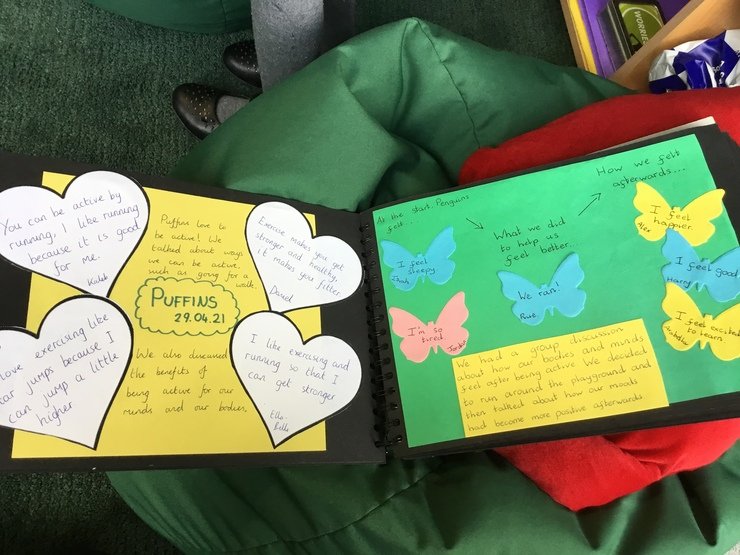 You can be active by
running, I like running
because it is good
for me.
Kaleb
Puffins love to
be active! We
talked about ways
we can be active
such as going for a
walk.
Exercise makes you get
stronger and healthy
it makes you fitter
PUFFINS
29.04.21
love exercising like
jumps because I
can jump a little
higher
We also discussed
the benefits of
being active for our
minds and our bodies.
I like exercising and
running so that I
can get stronger
Ella
At the start Penguins
felt....
What we did
to help us
feel better...
How we felt
afterwards....
I feel
sleepy
I'm so
tired.
We ran!
I feel
happier
Alex
I feel good
Harry
I feel excited
to learn
We had a group discussion
about how our bodies and minds
feel after being active. We decided
to run around the playground and
then talked about how our moods
had become more positive afterwards
WORRIE